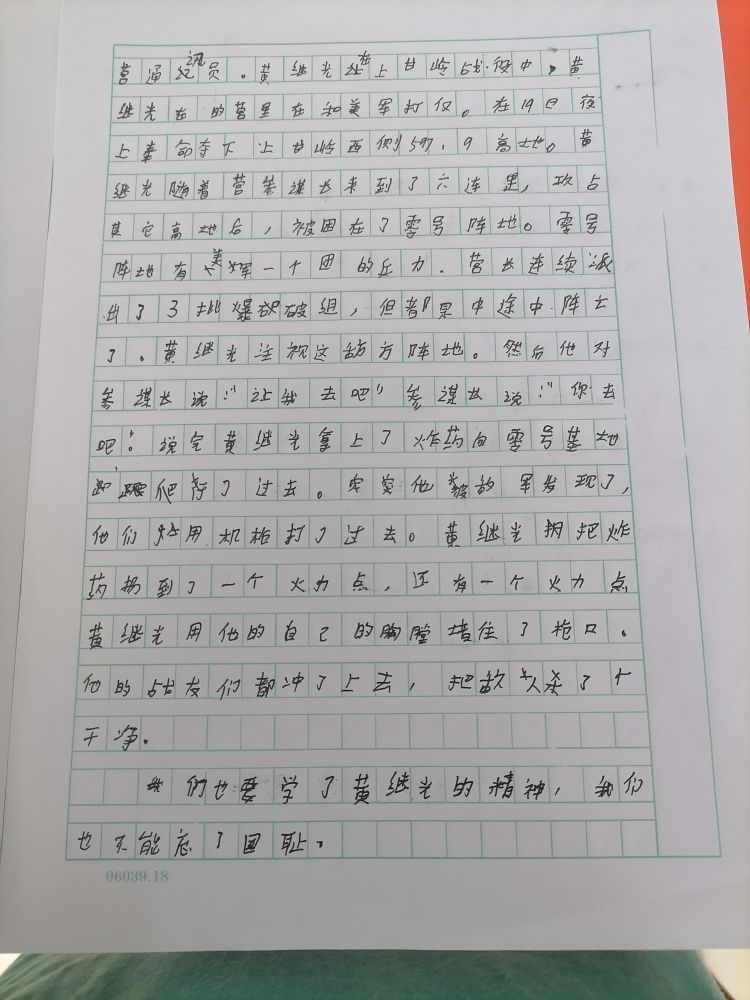 营通讯员。黄继光在上甘岭战役中,黄
继光在的营里在和美军打仗。在19日夜
上奉命夺下上甘岭西侧597.9高地。黄
继光随着营参谋长来到了六连里,攻占
其它高地后,被困在了零号阵地。零号
阵地有美 一个团的兵力。营长连续派
出了3批爆破组,但都是中途中阵亡
了。黄继光注视这敌方阵地。然后他对
参谋长说:“让我去吧”参谋长说:“你去
吧”。说完黄继光拿上了炸药向零号基地
爬行了过去。突突他被敌军发现了,
他们 用机枪打了过去。黄继光 把炸
药扔到了一个火力点,还有一个火力点
黄继光用他的自己的胸膛堵住了枪口。
他的战友们都冲了上去,把敌人杀了个
干净。
我们也要学了黄继光的精神,我们
也不能忘了国耻。
06039.18